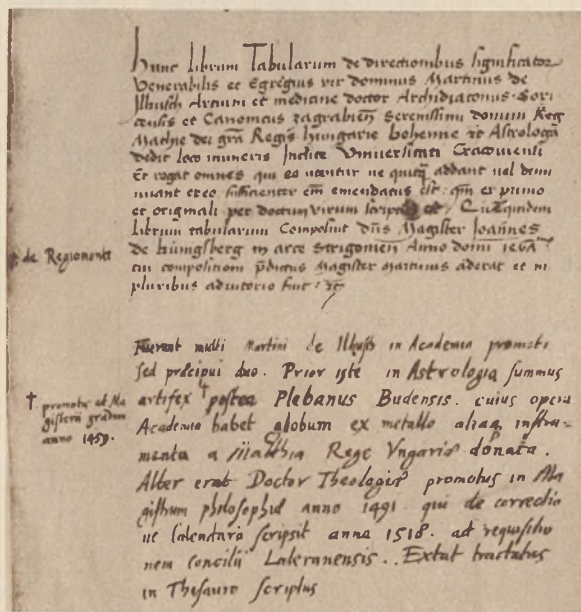 Hunc librum Tabularum de directionibus significator
Venerabilis et Egregius vir dominus Martinus de
Ilkusch Artium et medicine doctor Archidiaconus Gori
censis et Canonicus zagrabien Serenissimi domini Reg
Mathie dei grã Regis hungarie bohemie zc Astrologus
dedit loco muneris Inclite Vniversitati Cracovienti
Et rogat omnes qui eo utentur ne quicq addant vel demi
nuant et eo sufficienter em̃ emendatus est: qm̃ ex primo
et originali per doctum virum scriptus est Cuiusquidem
librum tabularum Composuit dñs Magister Joannes
de kungsberg in arce Strigonien Anno domi 1467
cui compositioni p̃dictus Magister martinus aderat et in
pluribus adiutorio fuit: zc
de Regiomonte
Fuerunt multi Martini de Ilkusch in Academia promoti
sed præcipui duo. Prior iste in Astrologia summus
artifex † postea Plebanus Budensis. cuius opera
Academia habet globum ex metallo aliaq instru-
menta a Matthia Rege Vngariæ donata.
Alter erat Doctor Theologiæ promotus in Ma
gistrum philosophiæ anno 1491. qui de correctio
ne calendarij scripsit anno 1518. ad requisitio
nem concilij Lateranensis. Extat tractatus
in Thesauro scriptus
† promotus ad Ma
gisterii gradum
anno 1459.